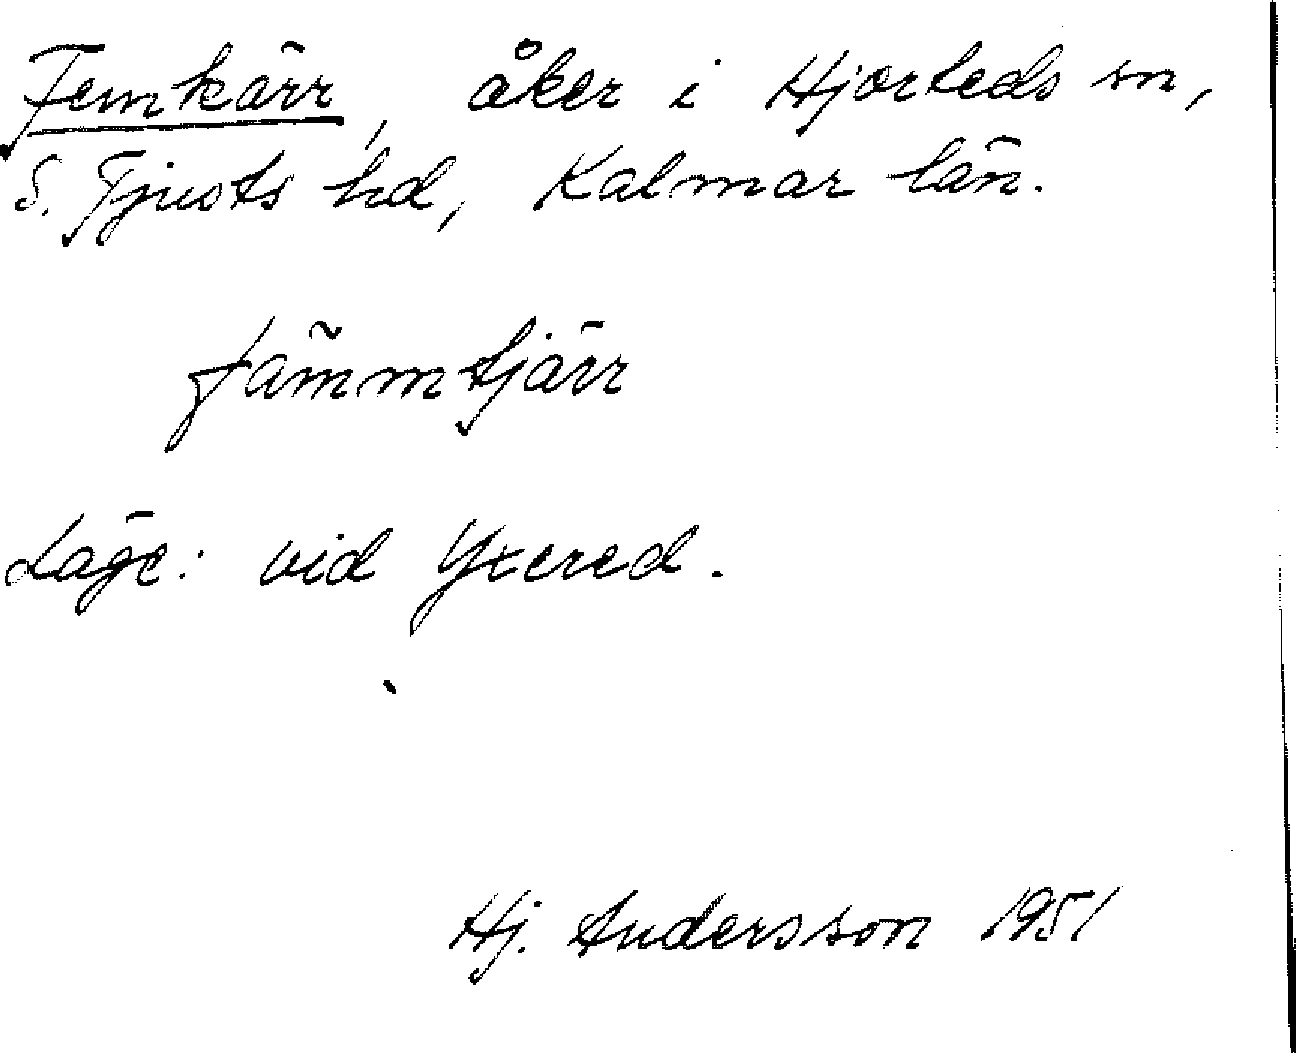 Femkärr, åker i Hjorteds sn,
S. Tjusts hd, Kalmar län.
fämmtjärr
Läge: vid Yxered.
Hj. Andersson 1951